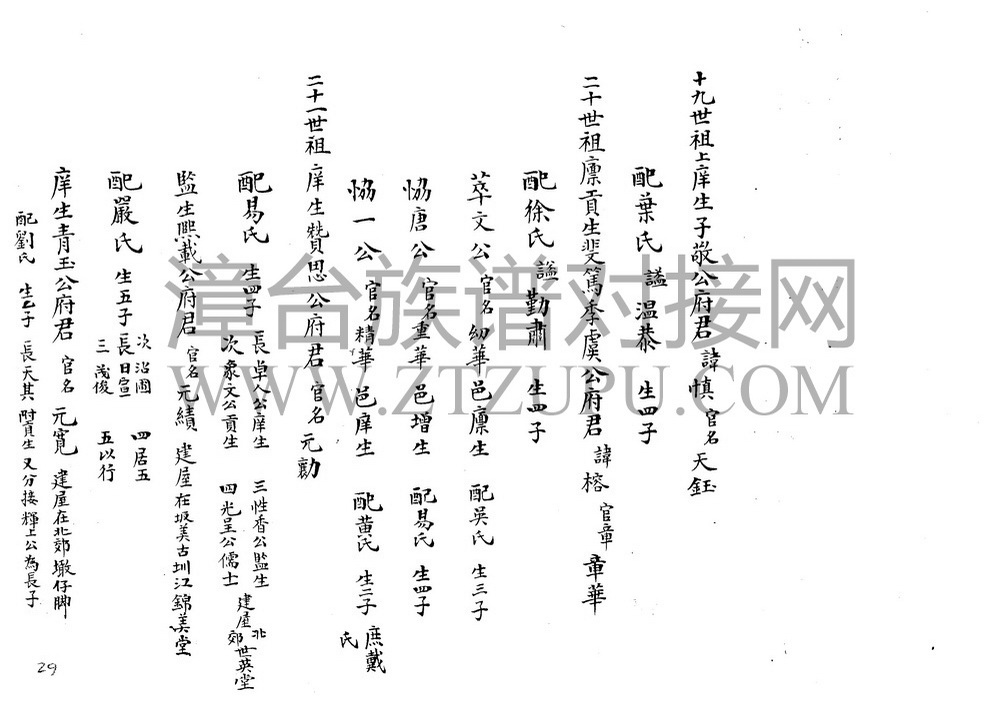 十九世祖上庠生子敬公府君 諱慎 官名天鈺
配葉氏 謚温恭 生四子
二十世祖廪貢生斐篤季虞公府君 諱榕 官章 章華
配徐氏 謚勤肅 生四子
萃文公 官名幼華邑廪生 配吳氏 生三子
恊唐公 官名重華邑增生 配易氏 生四子
恊一公 官名精華邑庠生 配黄氏 生二子 庶戴氏
二十一世祖 庠生贊思公府君 官名元勷
配易氏 生四子 長卓人公庠生 三性香公監生
次彖文公貢生 四光呈公儒士 建屋北郊世英堂
監生熙載公府君 官名元績 建屋在坂美古圳江錦美堂
配嚴氏 生五子 長日宣 次治國 三茂俊 四居五 五以行
庠生青玉公府君 官名元寬 建屋在北郊墩仔脚
配劉氏 生子 長天其 附貢生 又分接輝上公為長子
29
漳台族谱对接网
WWW.ZTZUPU.COM